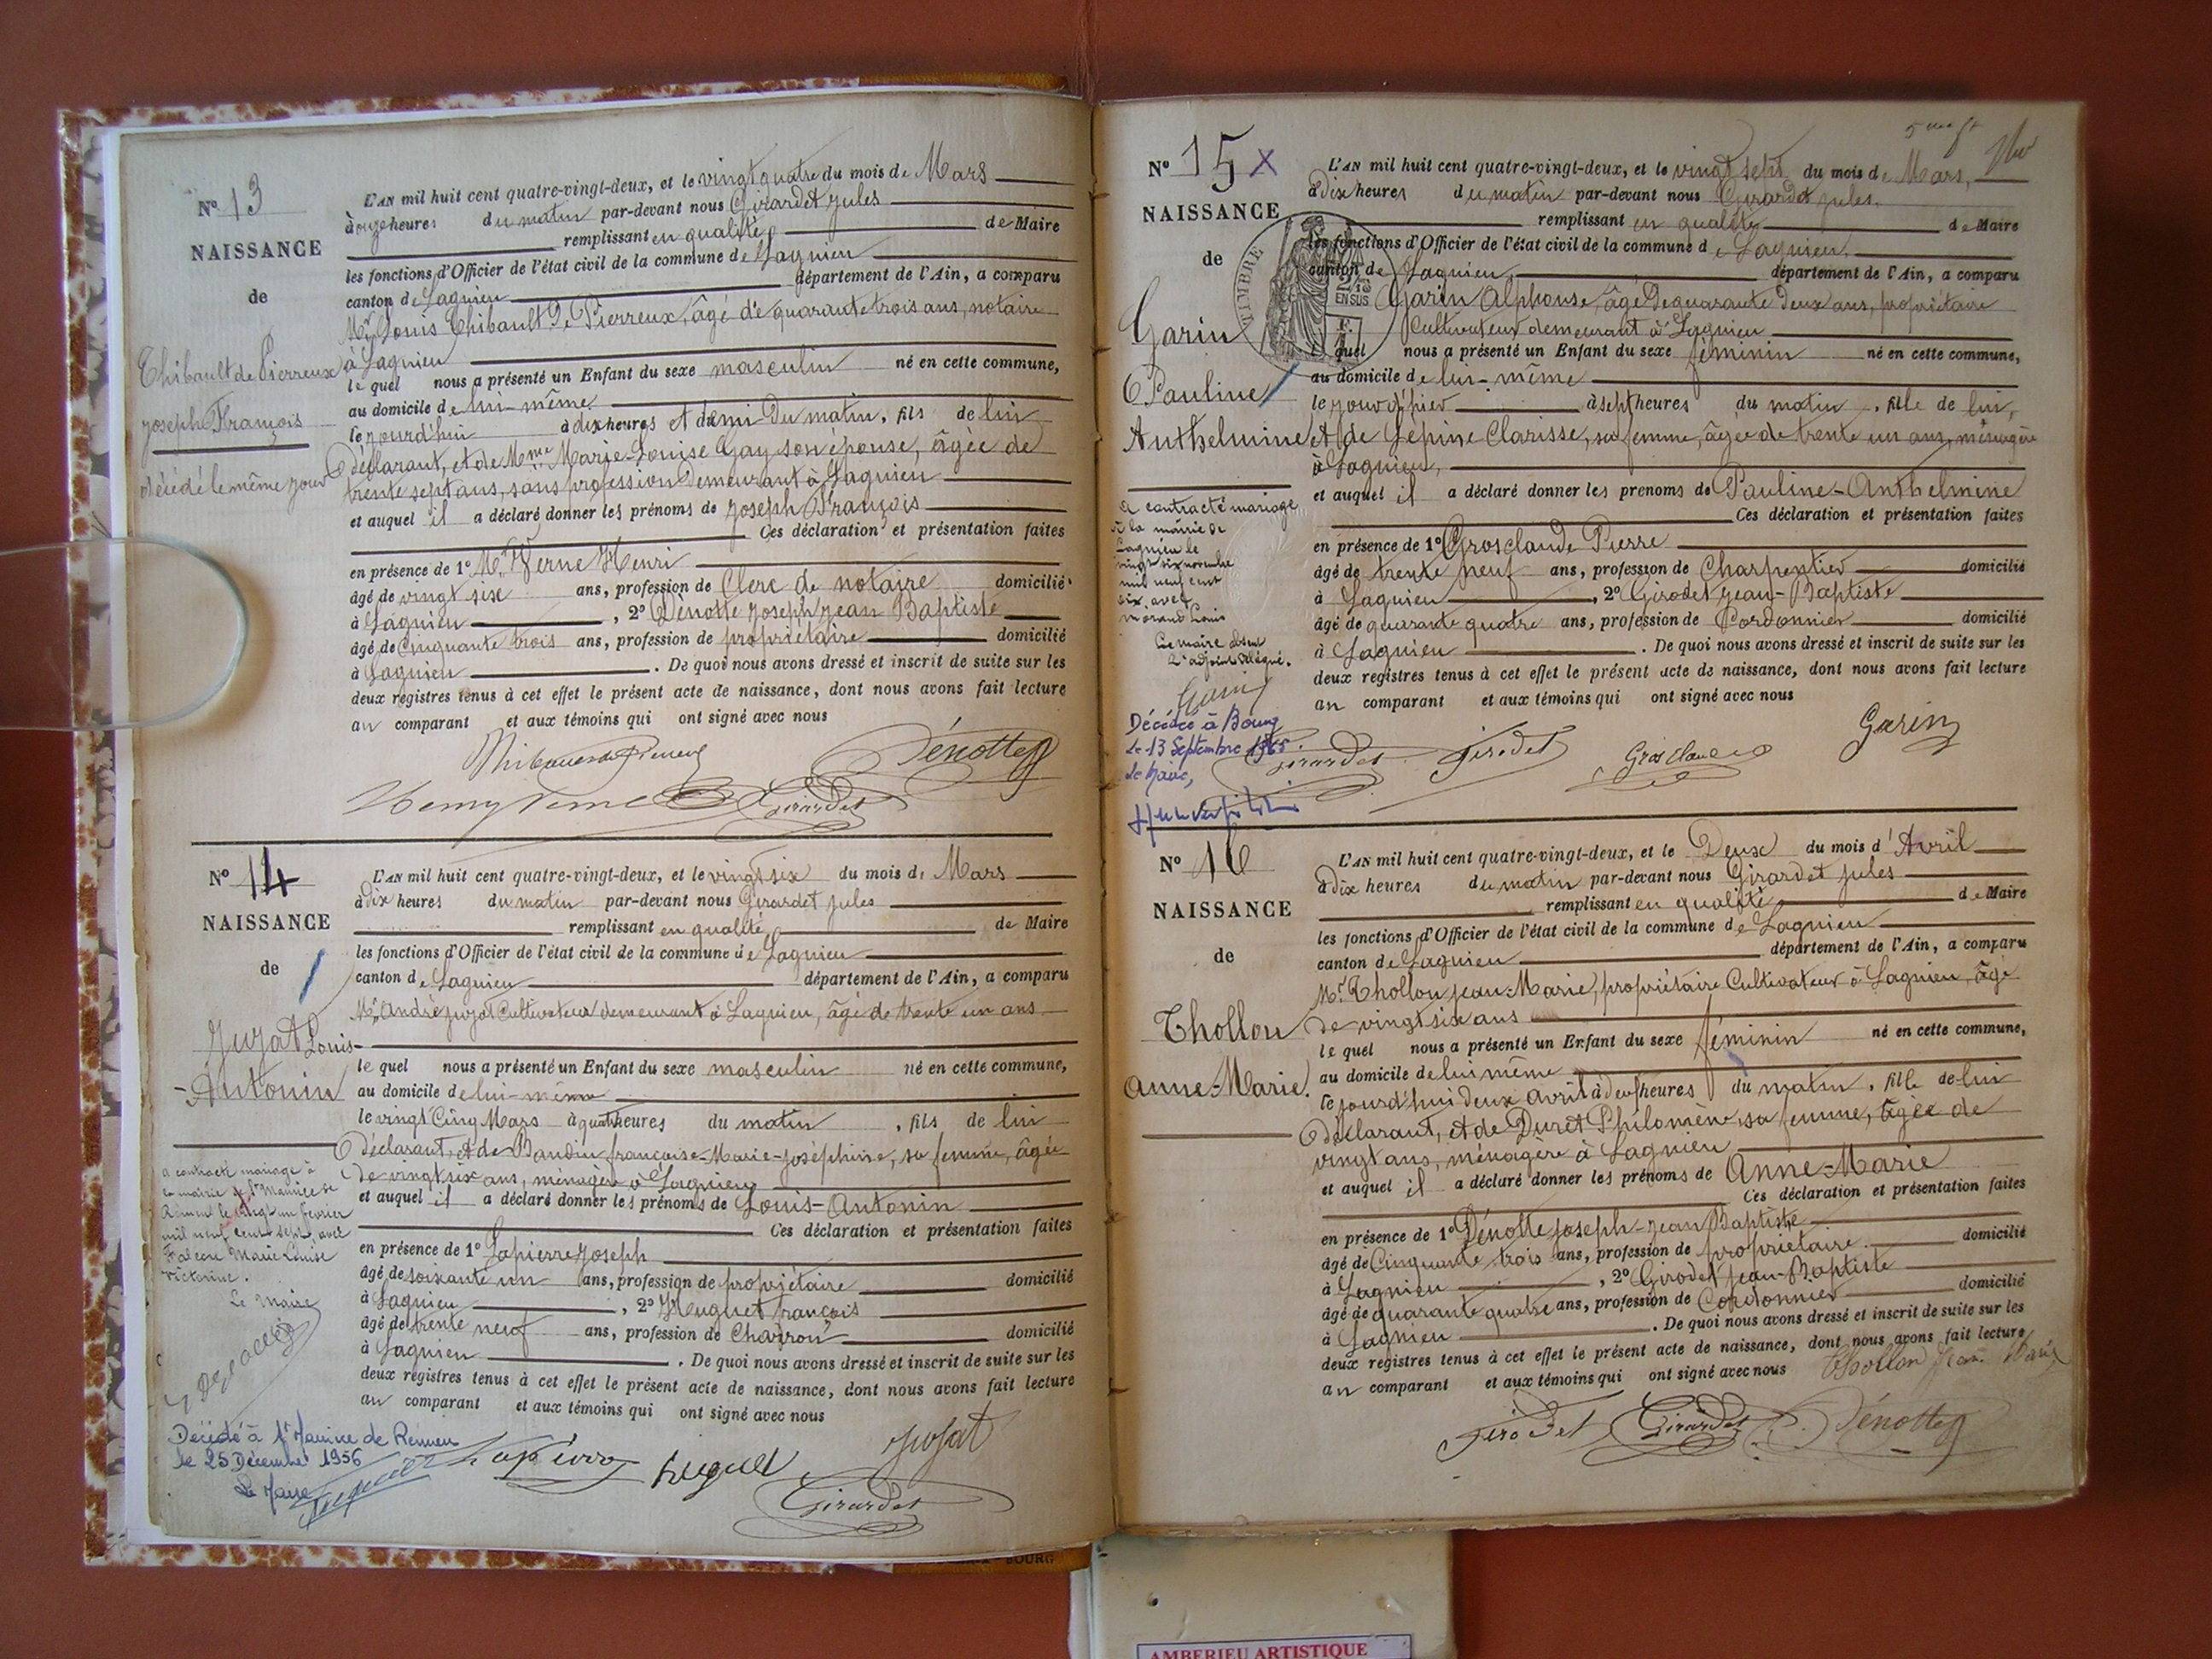 N° 13
NAISSANCE
de
Thibault de Pierreux
Joseph François
décédé le même jour
L'AN mil huit cent quatre-vingt-deux, et le vingt quatre du mois de Mars
à onze heures du matin par-devant nous Girardet Jules
remplissant en qualité de Maire
les fonctions d'Officier de l'état civil de la commune de Lagnieu
canton de Lagnieu département de l'Ain, a comparu
Mr Louis Thibault De Pierreux, âgé de quarante trois ans, notaire
à Lagnieu
le quel nous a présenté un Enfant du sexe masculin né en cette commune,
au domicile de lui-même
le jourd'hui à dix heures et demi du matin, fils de lui
déclarant, et de Mme Marie-Louise Gay son épouse, âgée de
trente sept ans, sans profession demeurant à Lagnieu
et auquel il a déclaré donner les prénoms de Joseph François
Ces déclaration et présentation faites
en présence de 1° Mr Verne Henri
âgé de vingt six ans, profession de Clerc de notaire domicilié
à Lagnieu, 2° Dénotte Joseph Jean Baptiste
âgé de Cinquante trois ans, profession de propriétaire domicilié
à Lagnieu. De quoi nous avons dressé et inscrit de suite sur les
deux registres tenus à cet effet le présent acte de naissance, dont nous avons fait lecture
au comparant et aux témoins qui ont signé avec nous
Dénotte
Henry Verne Girardet
N° 14
NAISSANCE
de
Jujat Louis-
-Antonin
a contracté mariage à
la mairie de St Maurice de
Rémens le vingt un février
mil neuf cent sept avec
Falcon Marie Louise
Victorine.
Le Maire
Décédé à St Maurice de Rémens
le 25 Décembre 1956
Le Maire
L'AN mil huit cent quatre-vingt-deux, et le vingt six du mois de Mars
à dix heures du matin par-devant nous Girardet Jules
remplissant en qualité de Maire
les fonctions d'Officier de l'état civil de la commune de Lagnieu
canton de Lagnieu département de l'Ain, a comparu
Mr André Jujat Cultivateur demeurant à Lagnieu, âgé de trente un ans
le quel nous a présenté un Enfant du sexe masculin né en cette commune,
au domicile de lui-même
le vingt Cinq Mars à quatre heures du matin, fils de lui
déclarant, et de Baudin françoise-Marie-Joséphine, sa femme, âgée
de vingt six ans, ménagère à Lagnieu
et auquel il a déclaré donner les prénoms de Louis-Antonin
Ces déclaration et présentation faites
en présence de 1° Lapierre Joseph
âgé de soixante un ans, profession de propriétaire domicilié
à Lagnieu, 2° Huguet françois
âgé de trente neuf ans, profession de Charron domicilié
à Lagnieu. De quoi nous avons dressé et inscrit de suite sur les
deux registres tenus à cet effet le présent acte de naissance, dont nous avons fait lecture
au comparant et aux témoins qui ont signé avec nous
Lapierre huguet Jujat
Girardet
N° 15 x
NAISSANCE
de
Garin
Pauline
Anthelmine
a contracté mariage
à la mairie de
Lagnieu le
vingt six novembre
mil neuf cent
dix, avec
Morand Louis
Le maire absent
L'adjoint délégué.
Décédée à Bourg
le 13 Septembre 1965
le Maire,
TIMBRE
EN SUS
L'AN mil huit cent quatre-vingt-deux, et le vingt sept du mois de Mars,
à dix heures du matin par-devant nous Girardet Jules.
remplissant en qualité de Maire
les fonctions d'Officier de l'état civil de la commune de Lagnieu.
canton de Lagnieu, département de l'Ain, a comparu
Garin Alphonse, âgé de quarante deux ans, propriétaire
Cultivateur demeurant à Lagnieu
le quel nous a présenté un Enfant du sexe féminin né en cette commune,
au domicile de lui-même
le jour d'hier à sept heures du matin, fille de lui,
et de Lépine Clarisse, sa femme, âgée de trente un ans, ménagère
à Lagnieu,
et auquel il a déclaré donner les prénoms de Pauline-Anthelmine
Ces déclaration et présentation faites
en présence de 1° Grosclaude Pierre
âgé de trente neuf ans, profession de Charpentier domicilié
à Lagnieu, 2° Girodet Jean-Baptiste
âgé de quarante quatre ans, profession de Cordonnier domicilié
à Lagnieu. De quoi nous avons dressé et inscrit de suite sur les
deux registres tenus à cet effet le présent acte de naissance, dont nous avons fait lecture
au comparant et aux témoins qui ont signé avec nous
Girardet Girodet Grosclaude Garin
N° 16
NAISSANCE
de
Thollon
Anne-Marie.
L'AN mil huit cent quatre-vingt-deux, et le Deux du mois d'Avril
à dix heures du matin par-devant nous Girardet Jules
remplissant en qualité de Maire
les fonctions d'Officier de l'état civil de la commune de Lagnieu
canton de Lagnieu département de l'Ain, a comparu
Mr Thollon Jean-Marie, propriétaire Cultivateur à Lagnieu, âgé
de vingt six ans
le quel nous a présenté un Enfant du sexe féminin né en cette commune,
au domicile de lui même
le jourd'hui deux avril à deux heures du matin, fille de lui
déclarant, et de Duret Philomène, sa femme, âgée de
vingt ans, ménagère à Lagnieu
et auquel il a déclaré donner les prénoms de Anne-Marie
Ces déclaration et présentation faites
en présence de 1° Dénotte Joseph-Jean Baptiste
âgé de Cinquante trois ans, profession de propriétaire domicilié
à Lagnieu, 2° Girodet Jean-Baptiste
âgé de quarante quatre ans, profession de Cordonnier domicilié
à Lagnieu. De quoi nous avons dressé et inscrit de suite sur les
deux registres tenus à cet effet le présent acte de naissance, dont nous avons fait lecture
au comparant et aux témoins qui ont signé avec nous Thollon Jean Marie
Girodet Girardet Dénotte
BOURG
AMBERIEU ARTISTIQUE